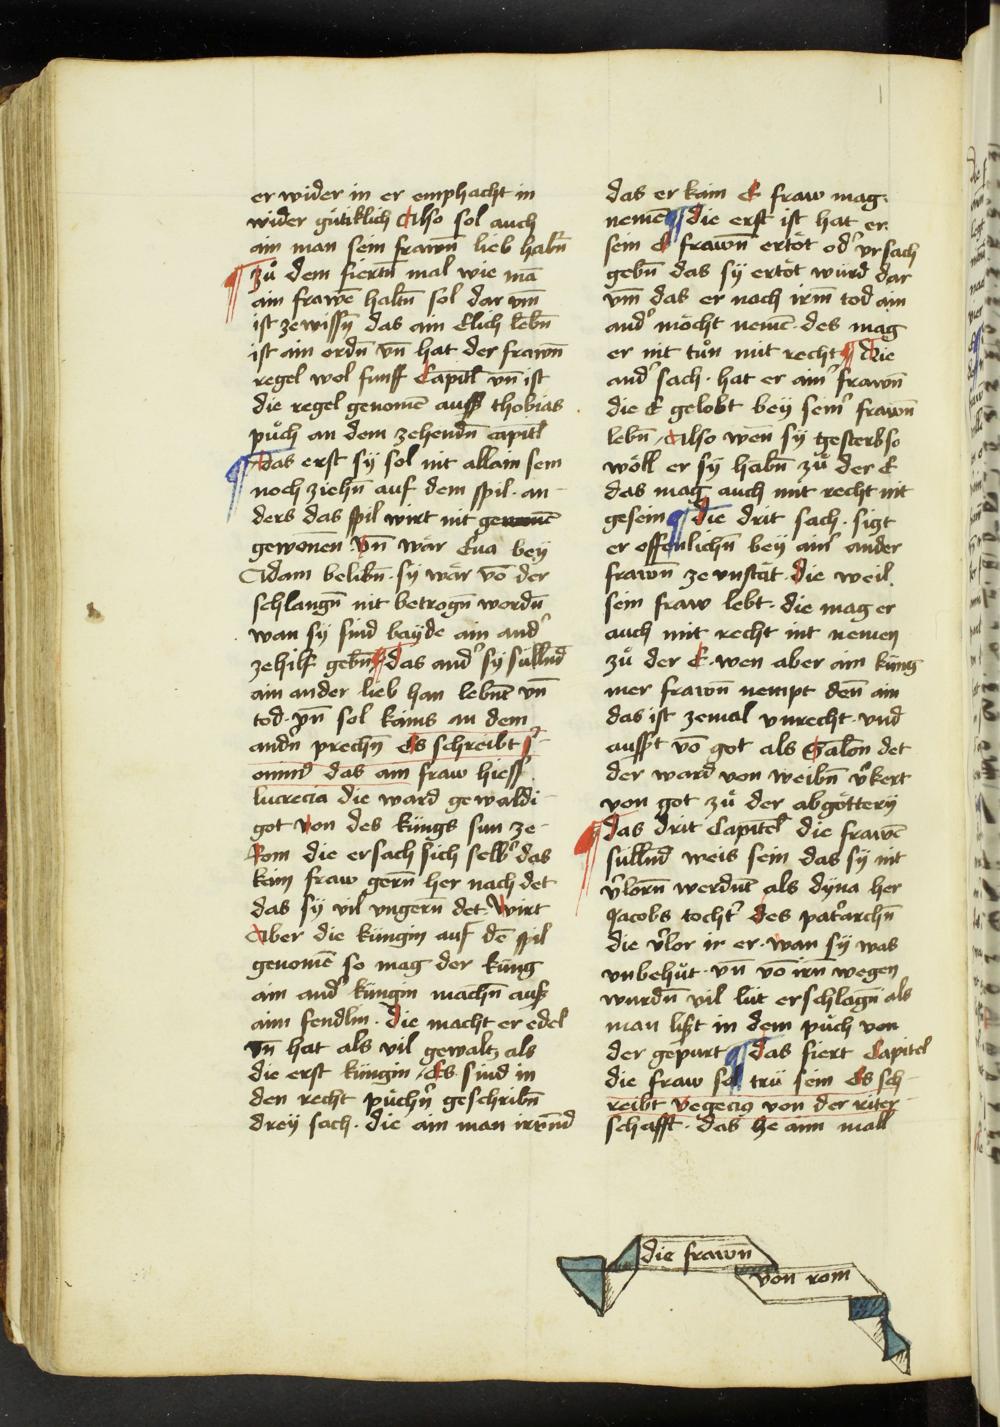 er wider in er emphacht in
wider gütiklich Also sol auch
ain man sein frawn̄ lieb habn̄
zů dem fiertn̄ mal wie mā
ain frawē haltn̄ sol dar vm̄
ist ze wissn̄ das ain Elich lebn̄
ist ain ordn̄ vn̄ hat der frawn̄
regel wol funff Capitl vn̄ ist
die regel genomē auß thobias
půch an dem zehendn̄ capitl
das erst sy sol nit allain sein
noch ziehn̄ auf dem spil · an-
ders das spil wirt nit
gewonen vn̄ wär Eua bey
Adam belibn̄ · sy wär vō der
schlangn̄ nit betrogn̄ wordn̄
wan sy sind bayde ain and'
ze hilf gebn̄ das and' sy sülln̄d
ain ander lieb han lebnt̄ vn̄
tod · vn̄ sol kains an dem
andn̄ prechn̄ Es schreibt
das ain fraw hieß
lucrecia die ward gewaldi-
got von des küngs sun ze-
Rom die ersach sich selb' das
kain fraw gern̄ her nach det
das sy vil vngern̄ det · Wirt
Aber die küngin auf dē spil
genomē so mag der küng
ain and' küngin machn̄ auß
aim fendlin · die macht er edel
vn̄ hat als vil gewaltz als
die erst küngin / Es sind in
den recht půchn̄ geschribn̄
drey sach · die ain man irrn̄d
das er kain E fraw mag
nemē die erst ist hat er
sein E frawn̄ ertöt od' vrsach
gebn̄ das sy ertöt würd dar
vm̄ das er nach irm̄ tod ain
and' möcht nemē · des mag
er nit tůn mit recht Die
and' sach · hat er ain' frawn̄
die E gelobt bey sein' frawn̄
lebn̄ / Also wen̄ sy gesterb so
wöll er sy habn̄ zů der E
das mag auch mit recht nit
gesein die drit sach · sigt
er offenlichn̄ bey ain' ander
frawn̄ ze vnstät · die weil
sein fraw lebt · die mag er
auch mit recht nit nemen
zů der E · wen aber ain küng
mer frawn̄ nempt den̄ ain
das ist zemal vnrecht · vnd
aufft vō got als Salon̄ det
der ward von weibn̄ v'kert
von got zů der abgöttery
das drit Capitel die frawē
sülln̄d weis sein das sy nit
v'lorn̄ werdnt̄ als dyna her
Jacobs tocht' des pat'archn̄
die v'lor ir er · wan sy was
vnbehůt · vn̄ vō irn̄ wegen
wurdn̄ vil lüt erschlagn̄ als
man lißt in dem půch von
der gepurt das fiert Capitel
die fraw sol trü sein Es sch-
reibt vegecius von der riter
schafft · das he aim mall
die frawn̄
von rom